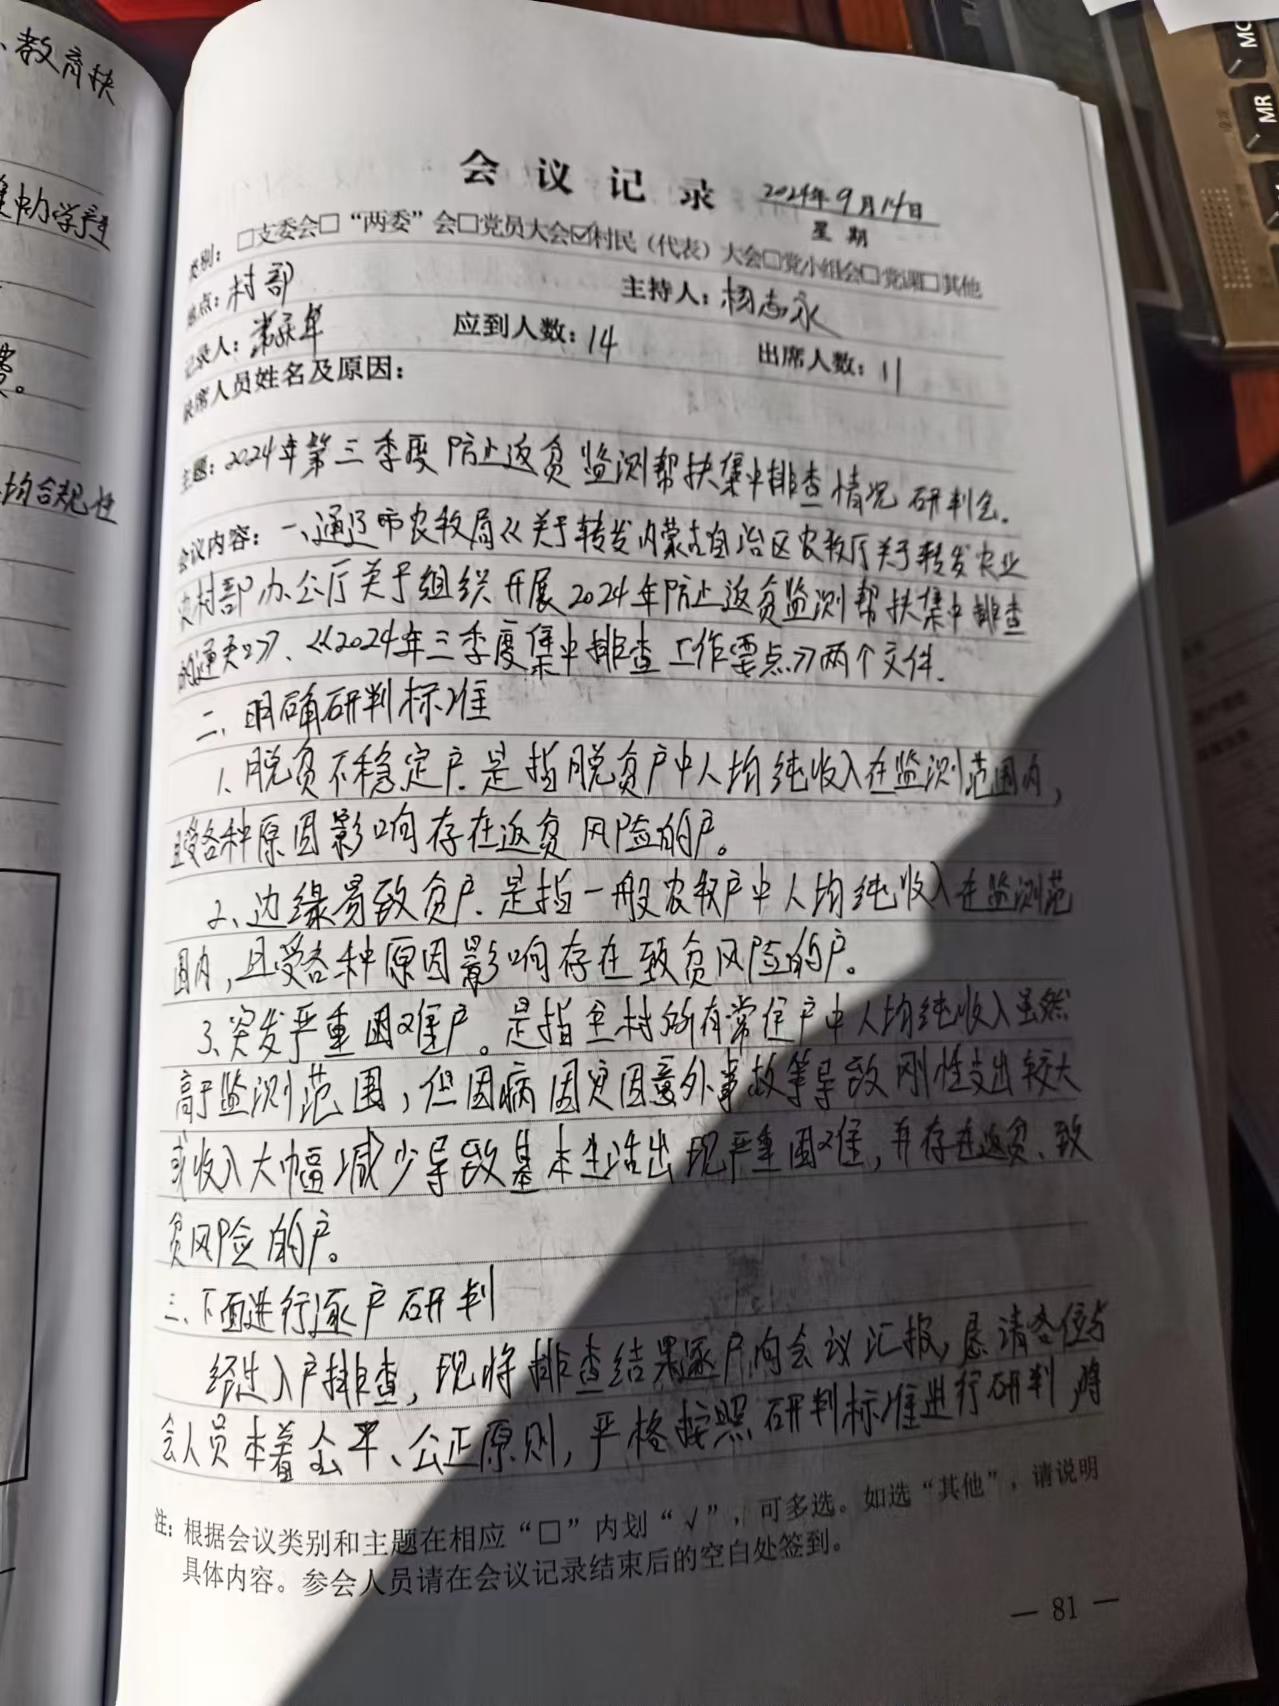 、教育扶
集中力学产
费。
均合规性
会 议 记 录 2024年9月14日
星 期
类别：□支委会□“两委”会□党员大会☑村民（代表）大会□党小组会□党课□其他
地点：村部 主持人：杨志永
记录人： 应到人数：14 出席人数：11
缺席人员姓名及原因：
主题：2024年第三季度防止返贫监测帮扶集中排查情况研判会.
会议内容：一、通辽市农牧局《关于转发内蒙古自治区农牧厅关于转发农业
农村部办公厅关于组织开展2024年防止返贫监测帮扶集中排查
的通知》》、《2024年三季度集中排查工作要点》两个文件.
二、明确研判标准
1、脱贫不稳定户.是指脱贫户中人均纯收入在监测范围内，
且受各种原因影响存在返贫风险的户。
2、边缘易致贫户.是指一般农牧户中人均纯收入在监测范
围内，且受各种原因影响存在致贫风险的户。
3、突发严重困难户。是指全村所有常住户中人均纯收入虽然
高于监测范围，但因病因灾因意外事故等导致刚性支出较大
或收入大幅减少导致基本生活出现严重困难，并存在返贫、致
贫风险的户。
三、下面进行逐户研判
经过入户排查，现将排查结果逐户向会议汇报，恳请各位与
会人员本着公平、公正原则，严格按照研判标准进行研判，将
注：根据会议类别和主题在相应“□”内划“√”，可多选。如选“其他”，请说明
具体内容。参会人员请在会议记录结束后的空白处签到。
— 81 —
MR